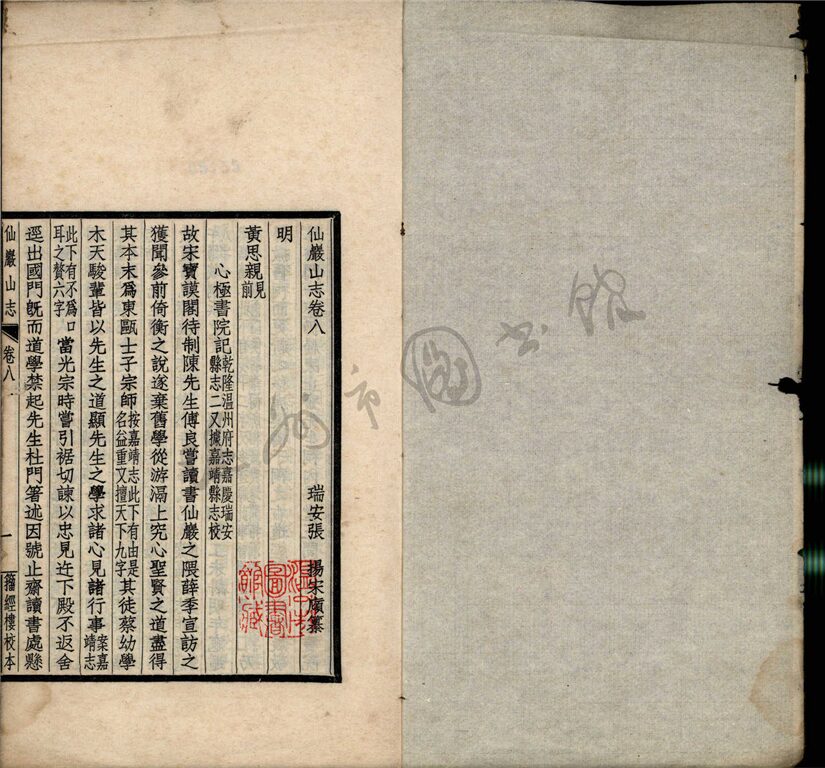 仙巖山志卷八
瑞安張 揚宋廎纂
明
黃思親見前
心極書院記乾隆溫州府志嘉慶瑞安縣志二又據嘉靖縣志校
故宋寶謨閣待制陳先生傅良嘗讀書仙巖之隈薛季宣訪之
獲聞參前倚衡之說遂棄舊學從游滆上究心聖賢之道盡得
其本末為東甌士子宗師按嘉靖志此下有由是名益重又擅天下九字其徒蔡幼學
木天駿輩皆以先生之道顯先生之學求諸心見諸行事案嘉靖志
此下有不為口耳之贅六字當光宗時嘗引裾切諫以忠見迕下殿不返舍
逕出國門旣而道學禁起先生杜門箸述因號止齋讀書處懸
仙巖山志 卷八 一 籀經樓校本
溫州市圖書館藏
溫州市圖書館